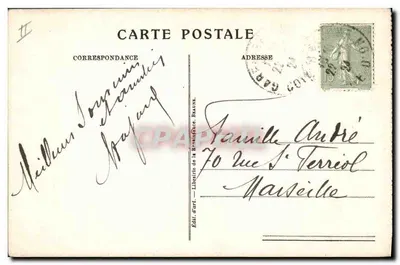 II
CARTE POSTALE
CORRESPONDANCE
ADRESSE
Meilleurs Souvenirs
et amitiés
Famille André
70 Rue St Ferréol
Marseille
Edit. d'art. - Librairie de la Renaissance, Beaune.